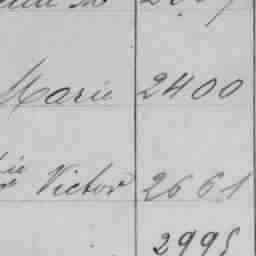 Marie 2400
Victor 2661
2995